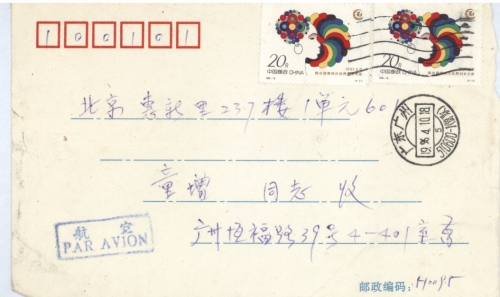 100101
20分 20分
中国邮政 CHINA 中国邮政 CHINA
北京 惠新里237楼1单元60
广东广州
1996.4.10.18
童增 同志 收
航空
PAR AVION
广州恒福路39号4-401室寄
邮政编码：510095